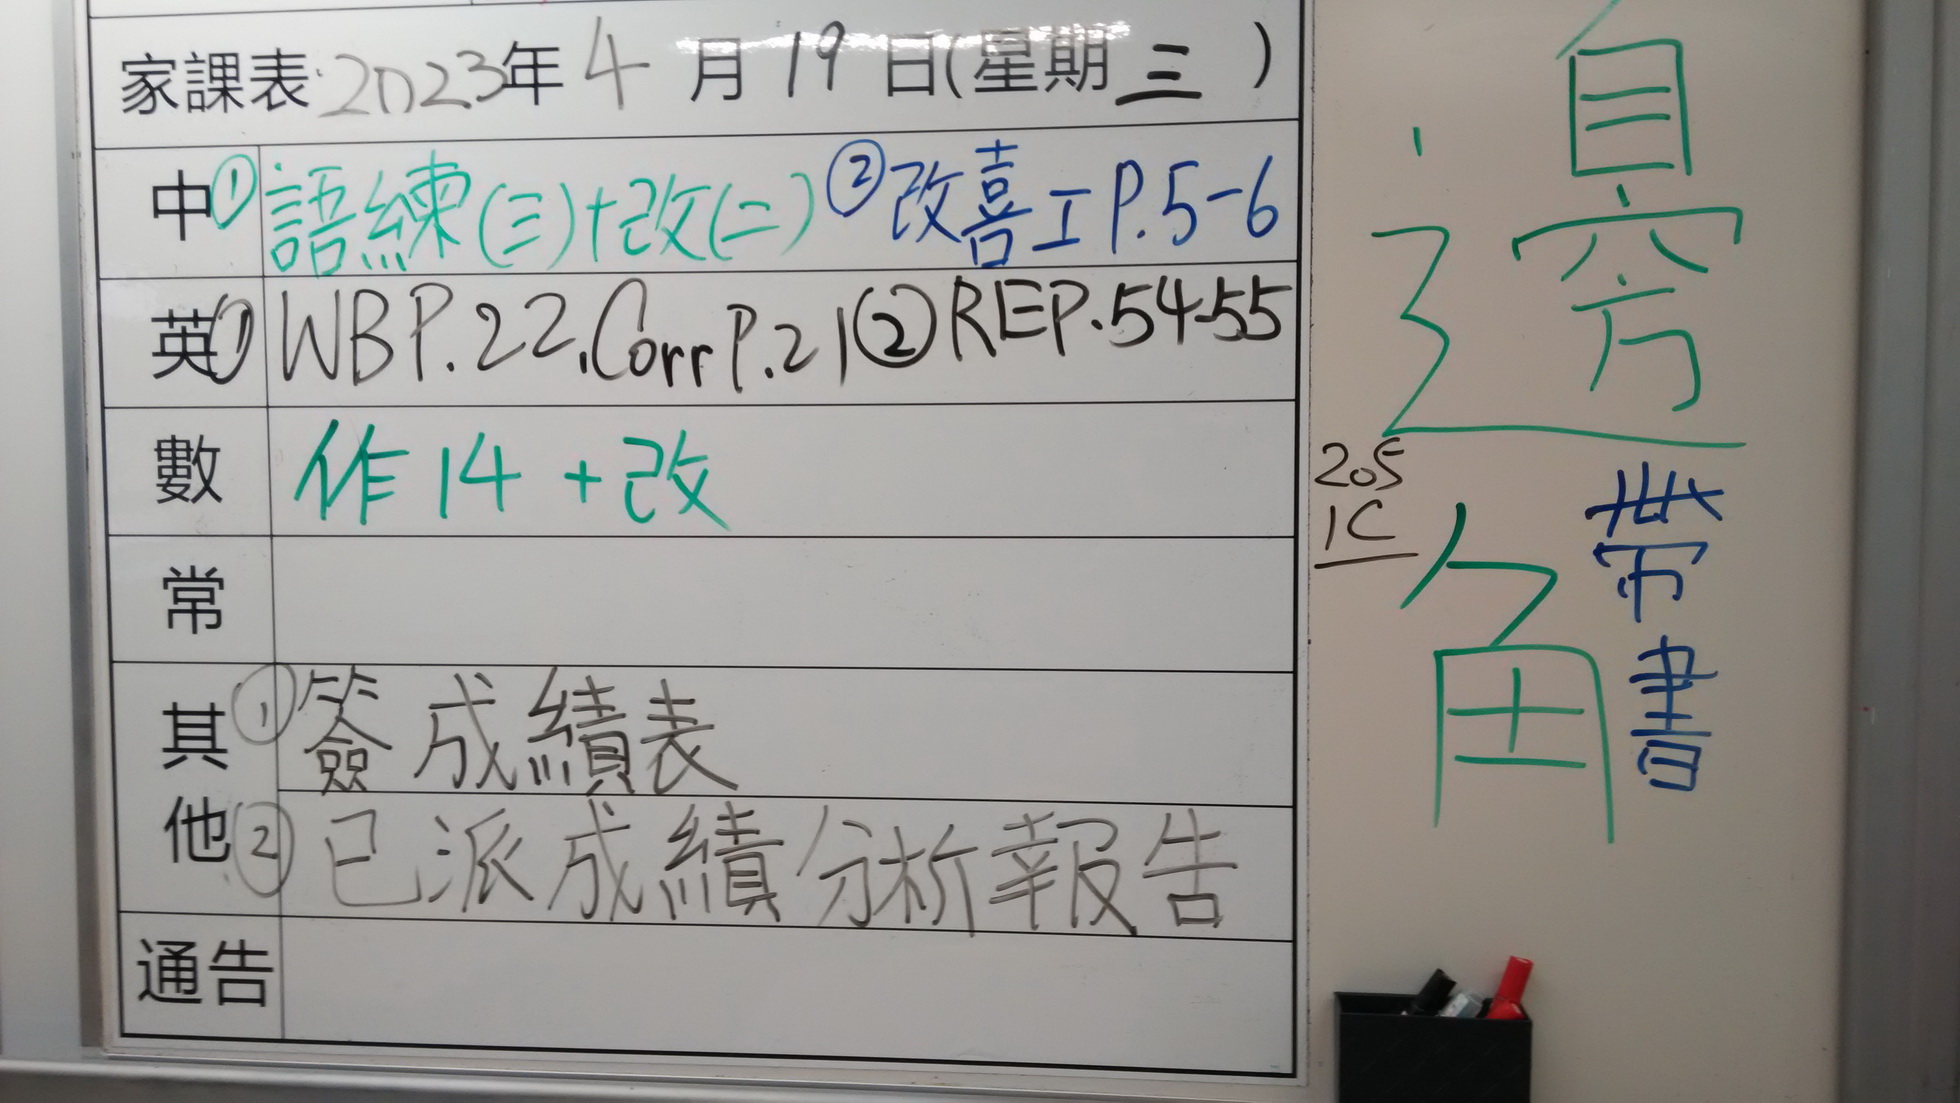 家課表: 2023年 4 月 19 日(星期 三 )
中 ① 語練(三)+改(二) ② 改善工 P.5-6
英 ① WB P.22, Corr P.21 ② RE P.54-55
數 作 14 + 改
常
其他 ① 簽成績表
② 已派成績分析報告
通告
邊
205
1C
角
帶書